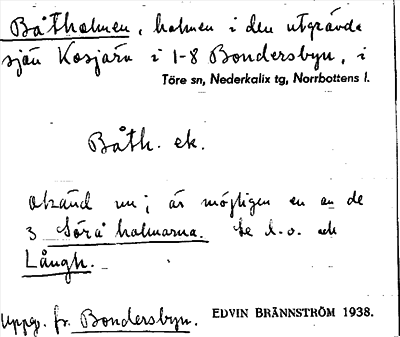 Båtholmen, holmen i den utgrävda
sjön Kosjärn i 1-8 Bondersbyn, i
Töre sn, Nederkalix tg, Norrbottens l.
Båth. ek.
okänd nu; är möjligen en av de
3 Sörå holmarna. Se d.o. och
Långh.
Uppg. fr. Bondersbyn.
EDVIN BRÄNNSTRÖM 1938.